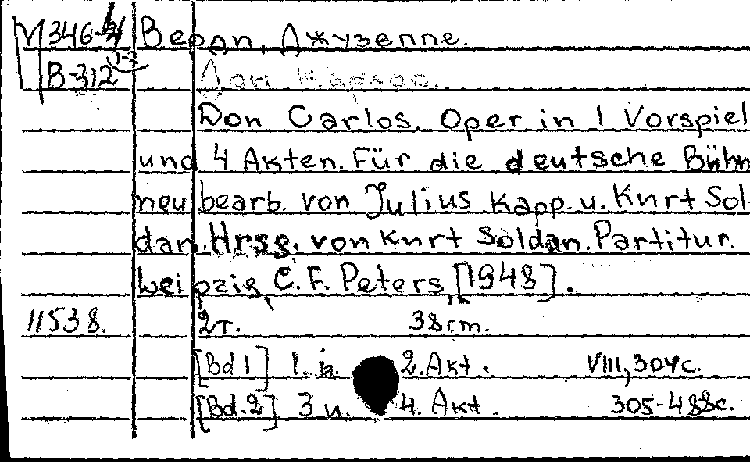 М346-
Верди, Джузеппе.
В-312 1-2
Дон Карлос.
Don Carlos. Oper in 1 Vorspiel
und 4 Akten. Für die deutsche Bühn
neu bearb. von Julius Kapp. u. Kurt Sol-
dan. Hrsg. von Kurt Soldan. Partitur.
Leipzig, C. F. Peters, [1948].
11538. 2т. 38cm.
[Bd 1] 1. u. 2. Akt. VIII, 304c.
[Bd. 2] 3 u. 4. Akt. 305-488c.